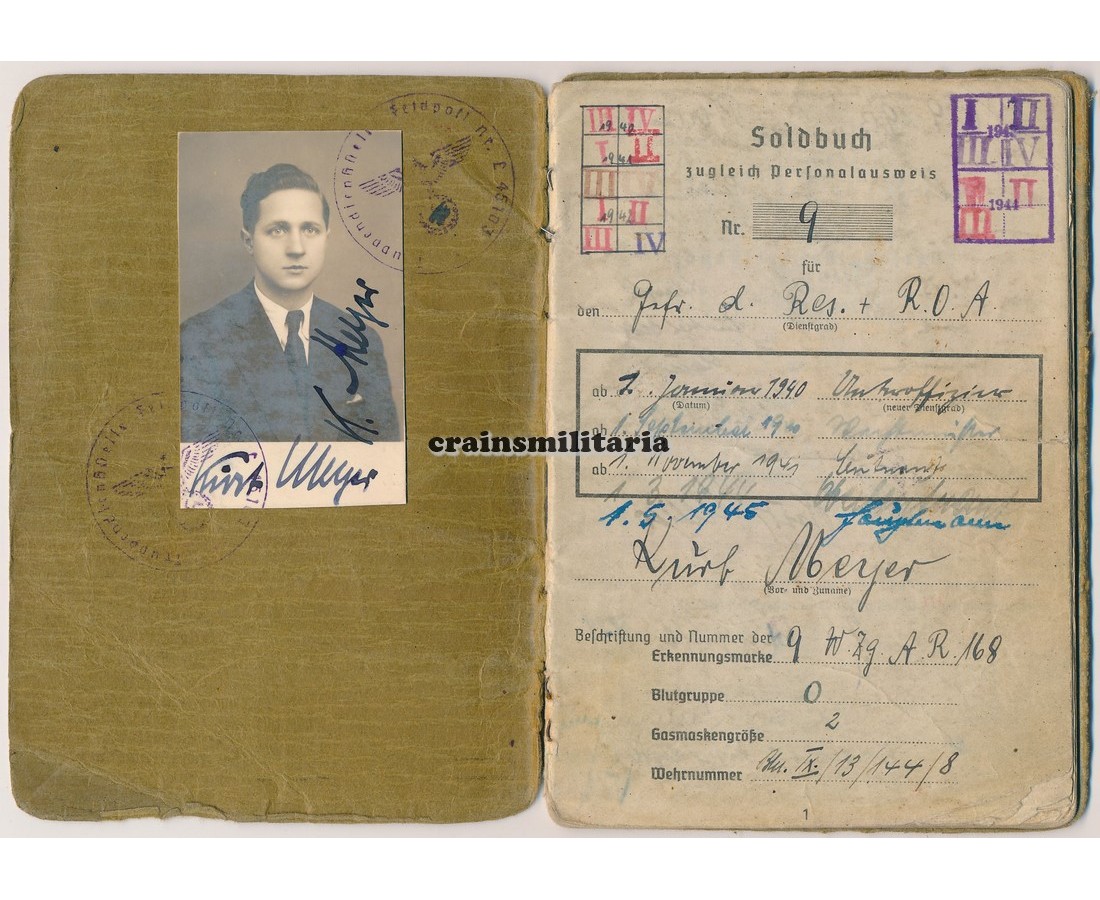 Feldpost Nr. L 46103
K. Meyer
Kurt Meyer
crainsmilitaria
III IV
1942
I II
III
I II
III IV
I II
III IV
I II
1944
III
Soldbuch
zugleich Personalausweis
Nr. 9
für
den Gefr. d. Res. + R.O.A.
(Dienstgrad)
ab 1. Januar 1940 Unteroffizier
(Datum) (neuer Dienstgrad)
ab 1. September 1940 Wachtmeister
ab 1. November 1941 Leutnant
1.5.1945 Hauptmann
Kurt Meyer
(Vor- und Zuname)
Beschriftung und Nummer der
Erkennungsmarke 9 W. Zg. A.R. 168
Blutgruppe O
Gasmaskengröße 2
Wehrnummer IX/13/144/8
1